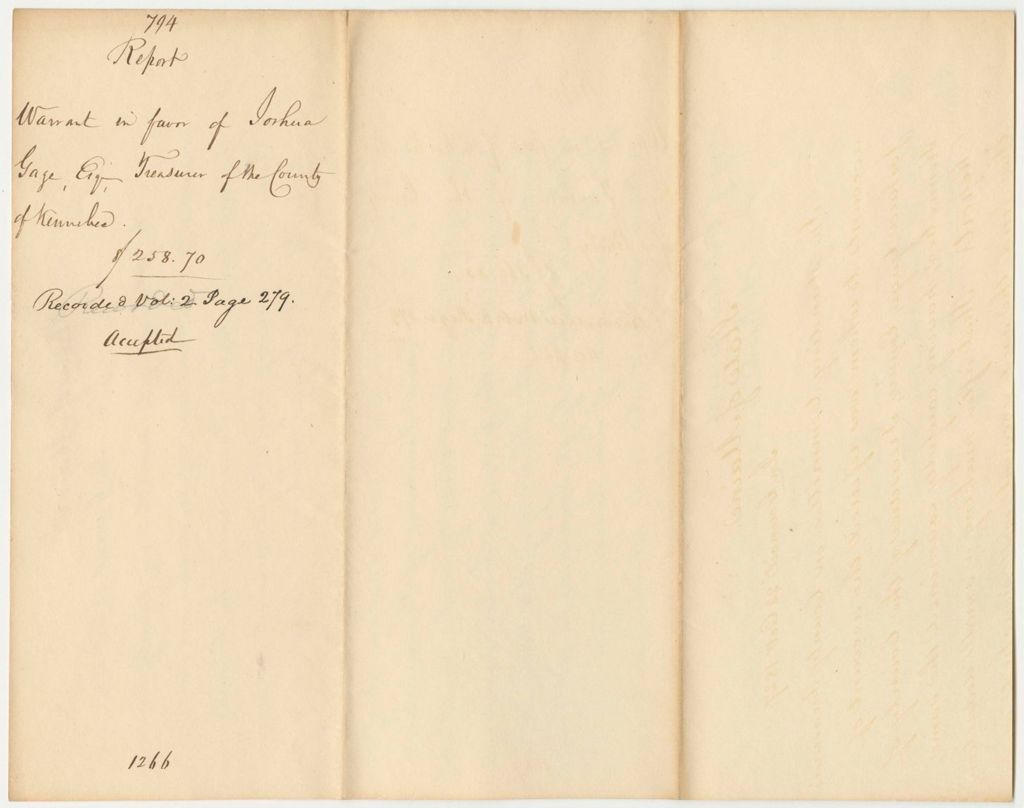 794
Report
Warrant in favor of Joshua
Gage, Esq, Treasurer of the County
of Kennebec.
$258.70
Recorded Vol: 2. Page 279.
Accepted
1266